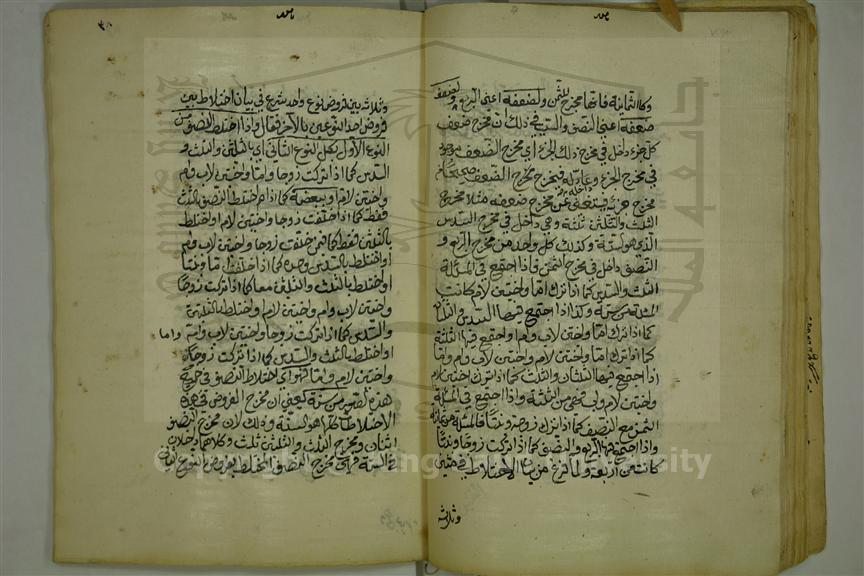 وكالثمانية فانها مخرج للثمن ولضعفه اعني الربع ولضعف
ضعفه اعني النصف والسر في ذلك ان مخرج ضعف
كل جزء داخل في مخرج ذلك الجزء اي مخرج الضعف موجود
في مخرج الجزء
مخرج جزئه فيستغنى عن مخرج ضعفه مثلا مخرج
الثلث والثلثين ثلثة وهي داخل في مخرج السدس
الذي هو الستة وكذلك كل واحد من مخرج الربع و
النصف داخل في مخرج الثمن فاذا اجتمع في المسئلة
الثلث والسدس كما اذا ترك اما واختين لام كانت
المسئلة من ستة وكذا اذا اجتمع فيها السدس والثلثان
كما اذا ترك اما واختين لاب وام واجتمع فيها الثلثة
كما اذا ترك اما واختين لام واختين لاب وام واما
اذا اجتمع فيها الثلثان والثلث كما اذا ترك اختين لام
واختين لاب وام فهي من الثلثة واذا اجتمع في المسئلة
الثمن مع النصف كما اذا ترك زوجة وبنتا فالمسئلة من ثمانية
واذا اجتمع فيها الربع والنصف كما اذا تركت زوجا وبنتا
كانت من اربعة ولما فرغ من بيان الاختلاط في مثلين
وثلاثة
وثلاثة بين فروض نوع واحد شرع في بيان اختلاط بين
فروض احد النوعين بالآخر فقال واذا اختلط النصف من
النوع الاول بكل النوع الثاني اي بالثلثين والثلث و
السدس كما اذا تركت زوجا واما واختين لاب وام
واختين لام او ببعضه كما اذا اختلط النصف بالثلث
فقط كما اذا خلفت زوجا واختين لام او اختلط
بالثلثين فقط كما فيمن خلفت زوجا واختين لاب وام
او اختلط بالسدس وحده كما اذا خلف اما وبنتا
او اختلط بالثلث والثلثين معا كما اذا تركت زوجا
واختين لاب وام واختين لام او اختلط بالثلثين
والسدس كما اذا تركت زوجا واختين لاب وام واما
او اختلط بالثلث والسدس كما اذا تركت زوجا
واختين لام واما فهو اي اختلاط النصف في جميع
هذه الصور من ستة يعني ان مخرج الفروض في هذه
الاختلاطات هو الستة وذلك لان مخرج النصف
اثنان ومخرج الثلث والثلثين ثلث وكلاهما داخلان
في الستة فهي مخرج النصف المختلط بفروض النوع الثاني
Copyright © King Saud University